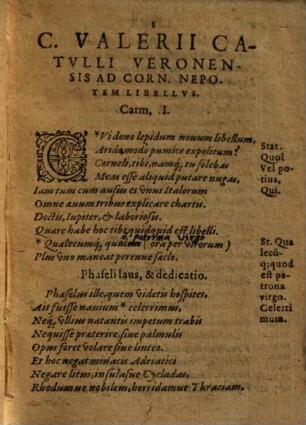 C. VALERII CA-
TVLLI VERONEN-
SIS AD CORN. NEPO-
TEM LIBELLVS.
Carm. I.
*Vi dono lepidum nouum libellum,
Arido modo pumice expolitum?
Corneli, tibi, namq; tu solebas
Meas esse aliquid putare nugas,
Iam tum cum ausus es vnus Italorum
Omne æuum tribus explicare chartis
Doctis, Iupiter, & laboriosis.
Quare habe hoc tibi quidquid est libelli
Patrima virgo
*Qualecumq; (ora per virorum)
Plus vno maneat perenne sæclo.
Phaseli laus, & dedicatio.
Phaselus ille, quem videtis hospites,
Ait fuisse nauium *celerrimus,
Neq; vllius natantis impetum trabis
Nequisse præterire, siue palmulis
Opus foret volare siue linteo.
Et hoc negat minacis Adriatici
Negare litus, insulasue Cycladas,
Rhodumue nobilem, horridamue Thraciam,
Stat.
Quoi
Vel po
tius,
Qui.
St. Qua
lecũ-
q; quod
est pa-
trona
virgo.
Celerri
mum.